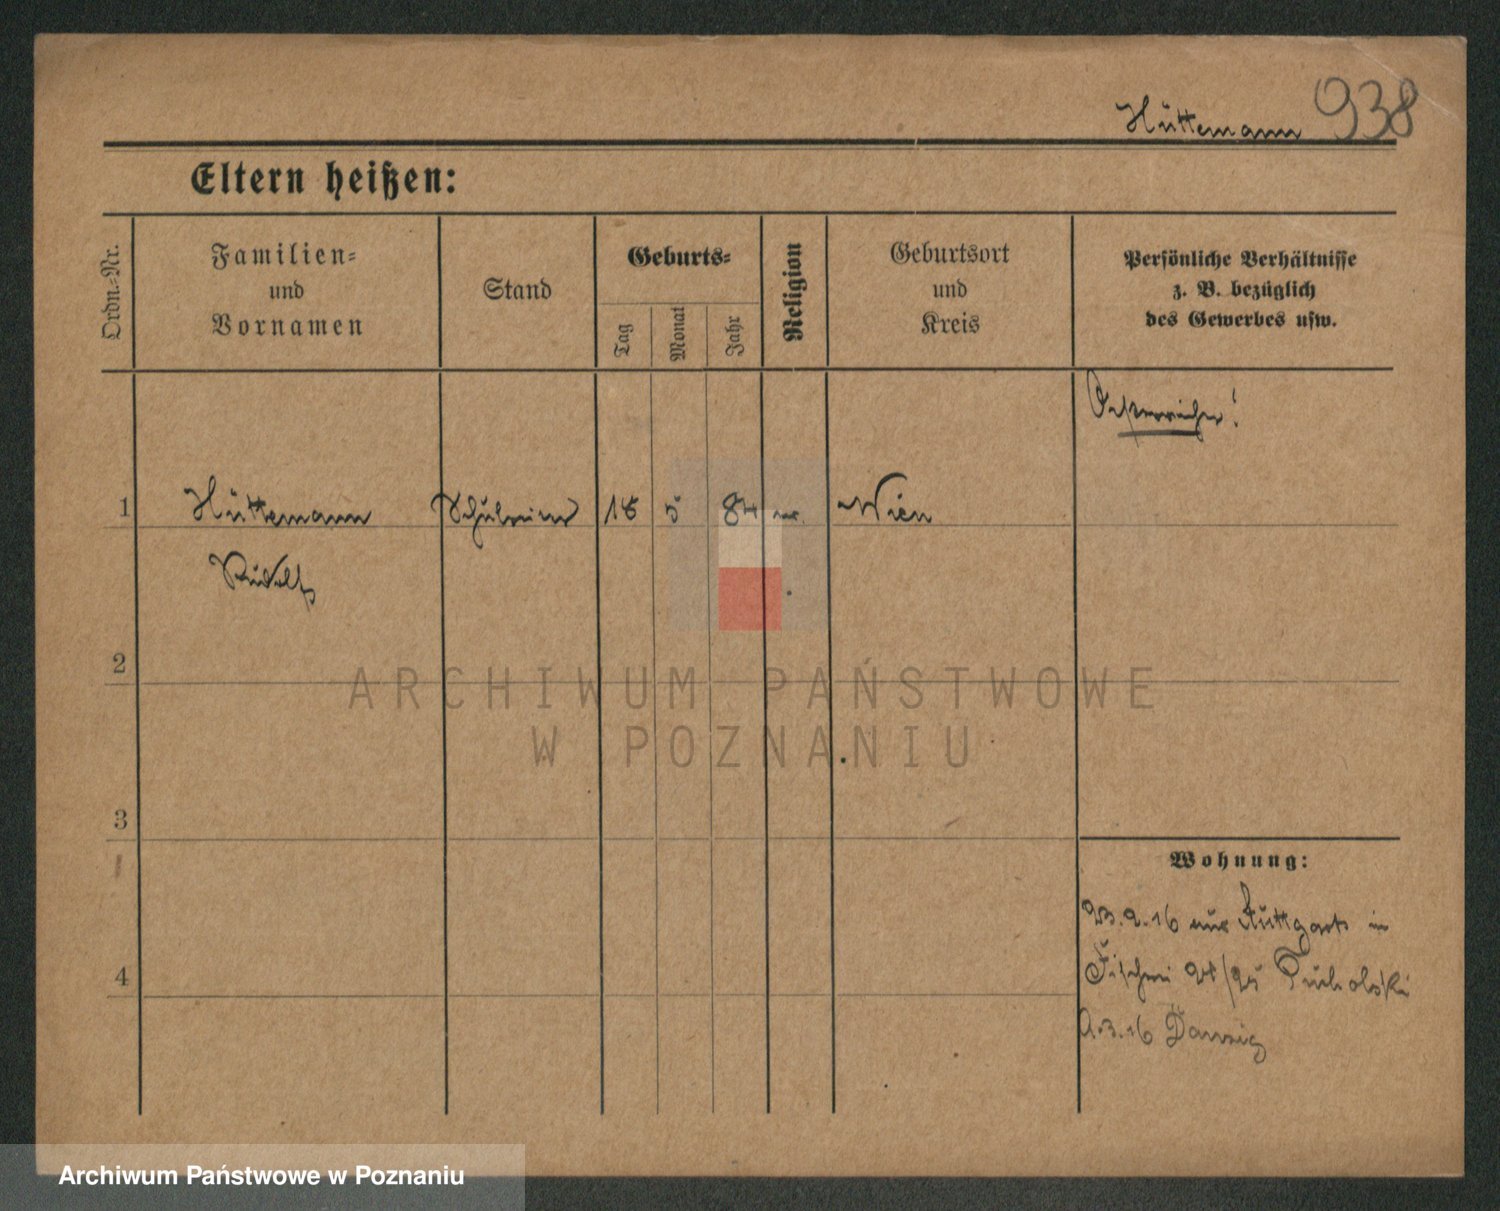 Hüttemann 938
Eltern heißen:
Ordn.-Nr.
Familien-
und
Vornamen
Stand
Geburts-
Tag
Monat
Jahr
Religion
Geburtsort
und
Kreis
Persönliche Verhältnisse
z. B. bezüglich
des Gewerbes usw.
Oesterreicher!
1 Hüttemann 18 5 84 Wien
Rudolf
2
3
4
Wohnung:
23.2.16 aus Stuttgart in
Fischerei 24/25 Tucholski
2.3.16 Danzig
ARCHIWUM PAŃSTWOWE
W POZNANIU
Archiwum Państwowe w Poznaniu